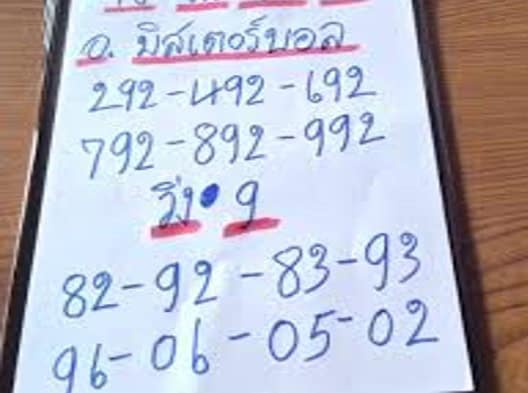 อ. มิสเตอร์บอล
292-492-692
792-892-992
วิ่ง • 9
82-92-83-93
96-06-05-02